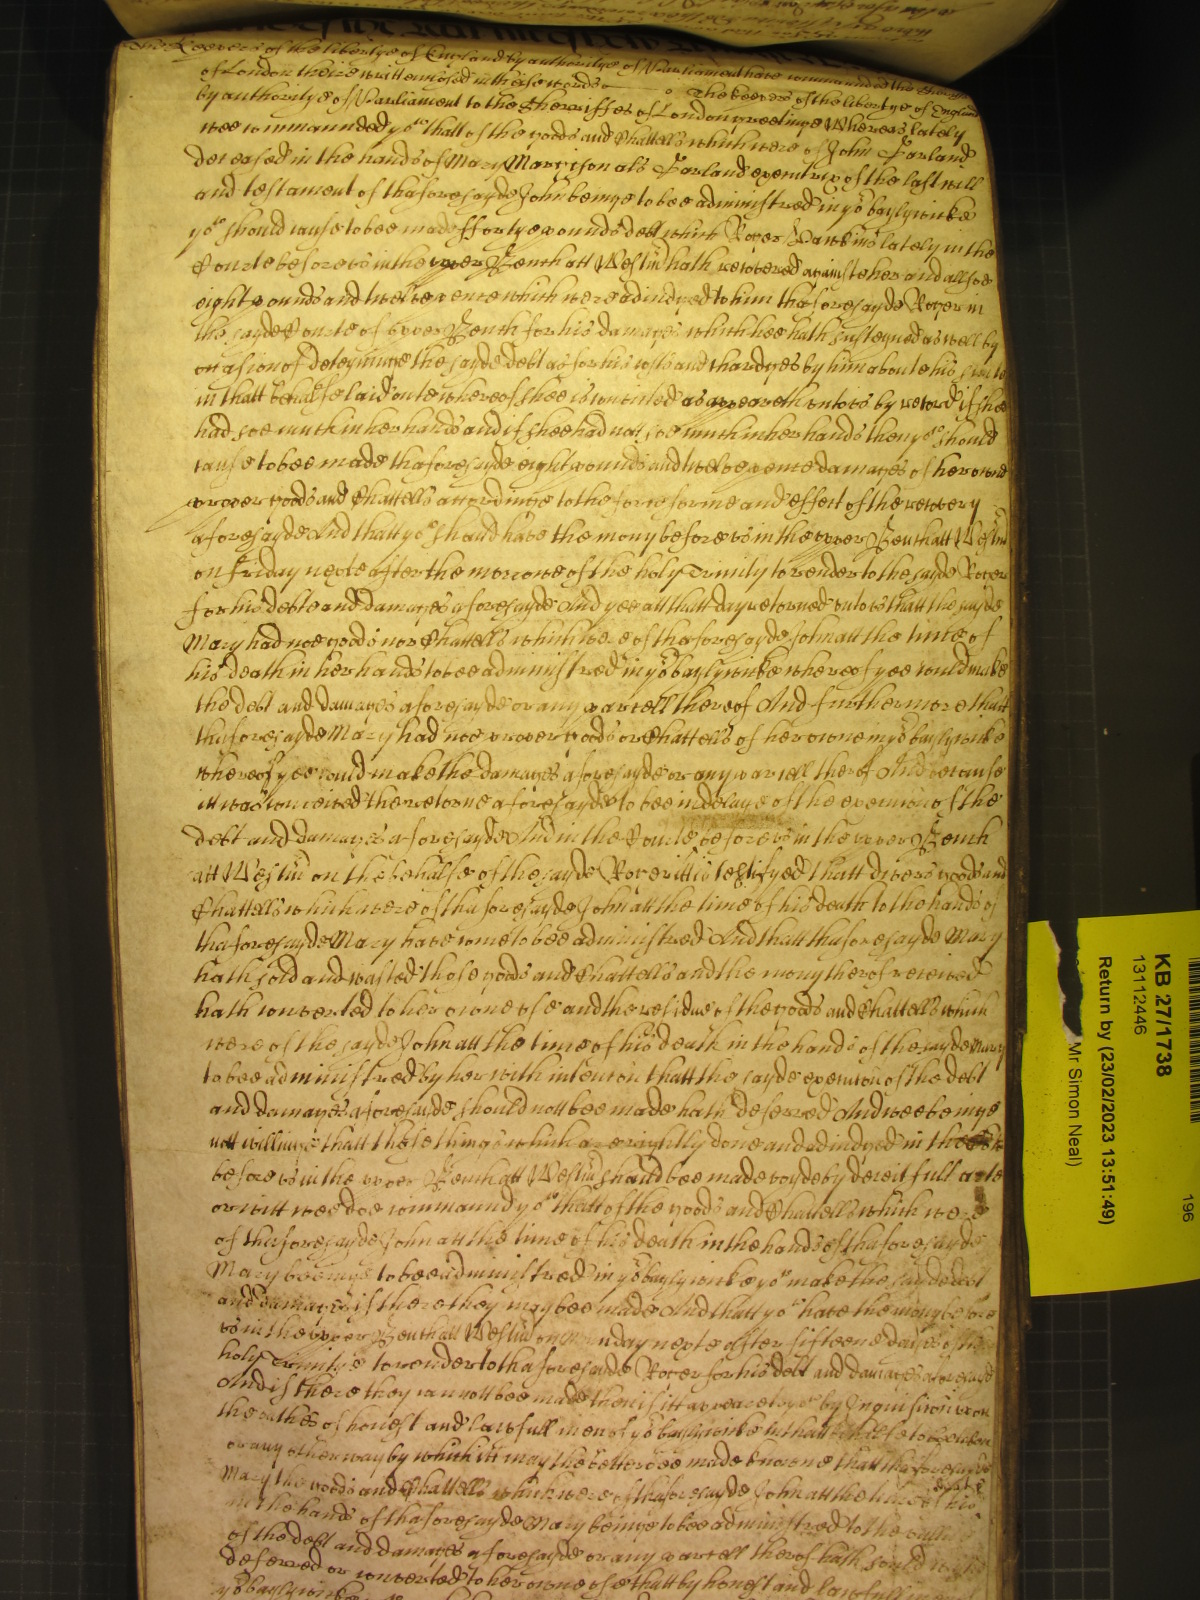 The Keepers of the libertye of England by authoritye of Parliament have commanded the Sherriffes
of London theire writt enclosed in theise words The Keepers of the libertye of England
by authoritye of Parliament to the Sherriffes of London greetinge Whereas lately
wee commaunded yow thatt of the goods and Chattells which were of John Garland
deceased in the hands of Mary Marrison als Garland executrix of the last will
and testament of thaforesayde John beinge to bee administred in yor baylywicke
yow should cause to bee made ffortye pounds debt which Roger Hawkins lately in the
Courte before us in the upper Bench att Westm hath recovered against her and allsoe
eight pounds and twelve pence which were adiudged to him thaforesayde Roger in
the sayde Courte of upper Bench for his damages which hee hath susteyned as well by
occasion of deteyninge the sayde debt as for his costs and chardges by him aboute his suite
in thatt behalfe laid oute whereof shee is convicted as appeareth unto us by record if shee
had soe much in her hands and if shee had nott soe much in her hands then yow should
cause to bee made thaforesayde eight pounds and twelve pence damages of her owne
proper goods and Chattells accordinge to the force forme and effect of the recovery
aforesayde And thatt yow should have the mony before us in the upper Bench att Westm
on Friday nexte after the morrowe of the holy Trinity to render to the sayde Roger
for his debte and damages aforesayde And yee att thatt day retorned unto us thatt the sayde
Mary had noe goods nor Chattells which were of thaforesayde John att the time of
his death in her hands to bee administred in yor baylywicke whereof yee could make
the debt and damages aforesayde or any parcell thereof And furthermore thatt
thaforesayde Mary had noe proper goods or Chattells of her owne in yor baylywicke
whereof yee could make the damages aforesayde or any parcell therof And because
itt was conceived the retorne aforesayde to bee in delaye of the execucion of the
debt and damages aforesayde And in the Courte before us in the upper Bench
att Westm on the behalfe of the sayde Roger itt is testifyed thatt divers goods and
Chattells which were of thaforesayde John att the time of his death to the hands of
thaforesayde Mary have come to bee administred And thatt thaforesayde Mary
hath sold and wasted those goods and Chattells and the mony therof received
hath converted to her owne use and the residue of the goods and Chattells which
were of the sayde John att the time of his death in the hands of the sayde Mary
to bee administred by her with intencion thatt the sayde execucion of the debt
and damages aforesayde should nott bee made hath deferred And wee beinge
nott willinge thatt these things which are rightly done and adiudged in the Courte
before us in the upper Bench att Westm should bee made voyde by deceitfull arte
or witt wee doe commaund yow thatt of the goods and Chattells which were
of thaforesayde John att the time of his death in the hands of thaforesayde
Mary beeinge to bee administred in yor baylywicke yow make the sayde debt
and damages if there they may bee made And thatt yow have the mony before
us in the upper Bench att Westm on Munday nexte after fifteene dayes of the
holy Trinitye to render to thaforesayde Roger for his debt and damages aforesayde
And if there they cannott bee made then if itt appeare to yow by Inquisicion upon
the oathes of honest and lawfull men of yor baylywicke in thatt behalfe to bee taken
or any other way by which itt may the better bee made knowne thatt thaforesayde
Mary the goods and Chattells which were of thaforesayde John att the time of his death
in the hands of thaforesayde Mary beinge to bee administred to the value
of the debt and damages aforesayde or any parcell therof hath sould
deferred or converted to her owne use thatt by honest and lawfull men of
yor baylywicke
KB 27/1738
13112446
Return by (23/02/2023 13:51:49)
Mr Simon Neal)
196